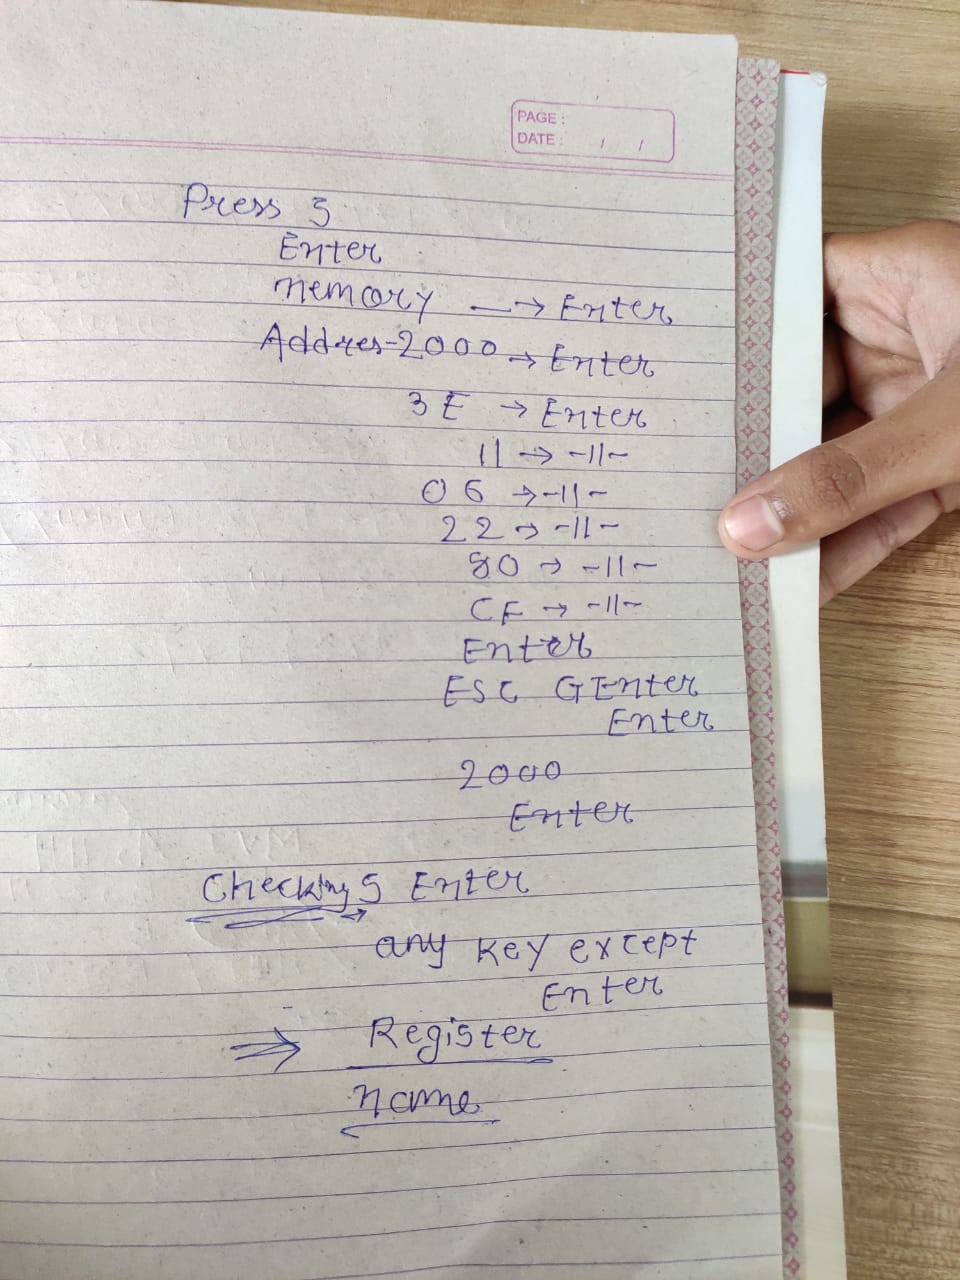 PAGE :
DATE : / /
Press 5
Enter
memory → Enter
Addres-2000 → Enter
3E → Enter
11 → -11-
06 → -11-
22 → -11-
80 → -11-
CF → -11-
Enter
ESC G Enter
Enter
2000
Enter
Checking 5 Enter
→ any key except
Enter
⇒ Register
name